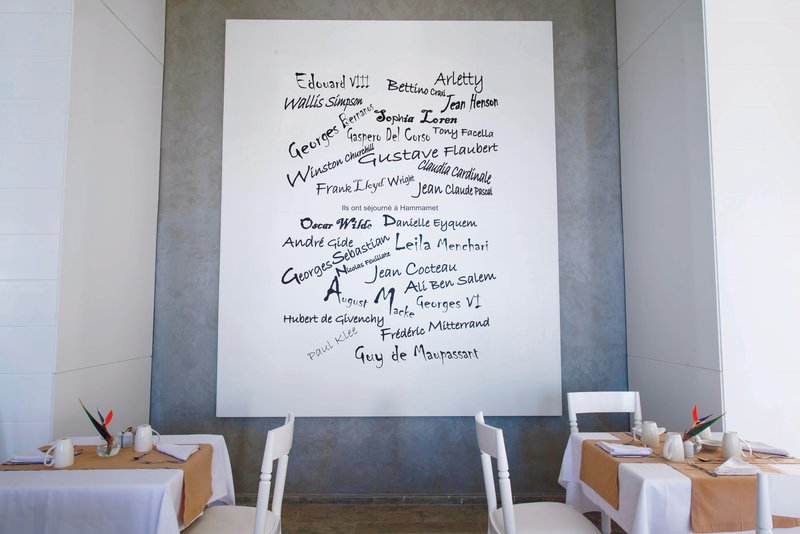 Edouard VIII
Bettino Craxi
Arletty
Wallis Simpson
Jean Henson
Georges Bernanos
Sophia Loren
Gaspero Del Corso
Tony Facella
Winston Churchill
Gustave Flaubert
Claudia Cardinale
Frank Lloyd Wright
Jean Claude Pascal
Ils ont séjourné à Hammamet
Oscar Wilde
Danielle Eyquem
André Gide
Georges Sebastian
Leila Menchari
Nicolas Feuillate
Jean Cocteau
Ali Ben Salem
August Macke
Georges VI
Hubert de Givenchy
Paul Klee
Frédéric Mitterrand
Guy de Maupassant